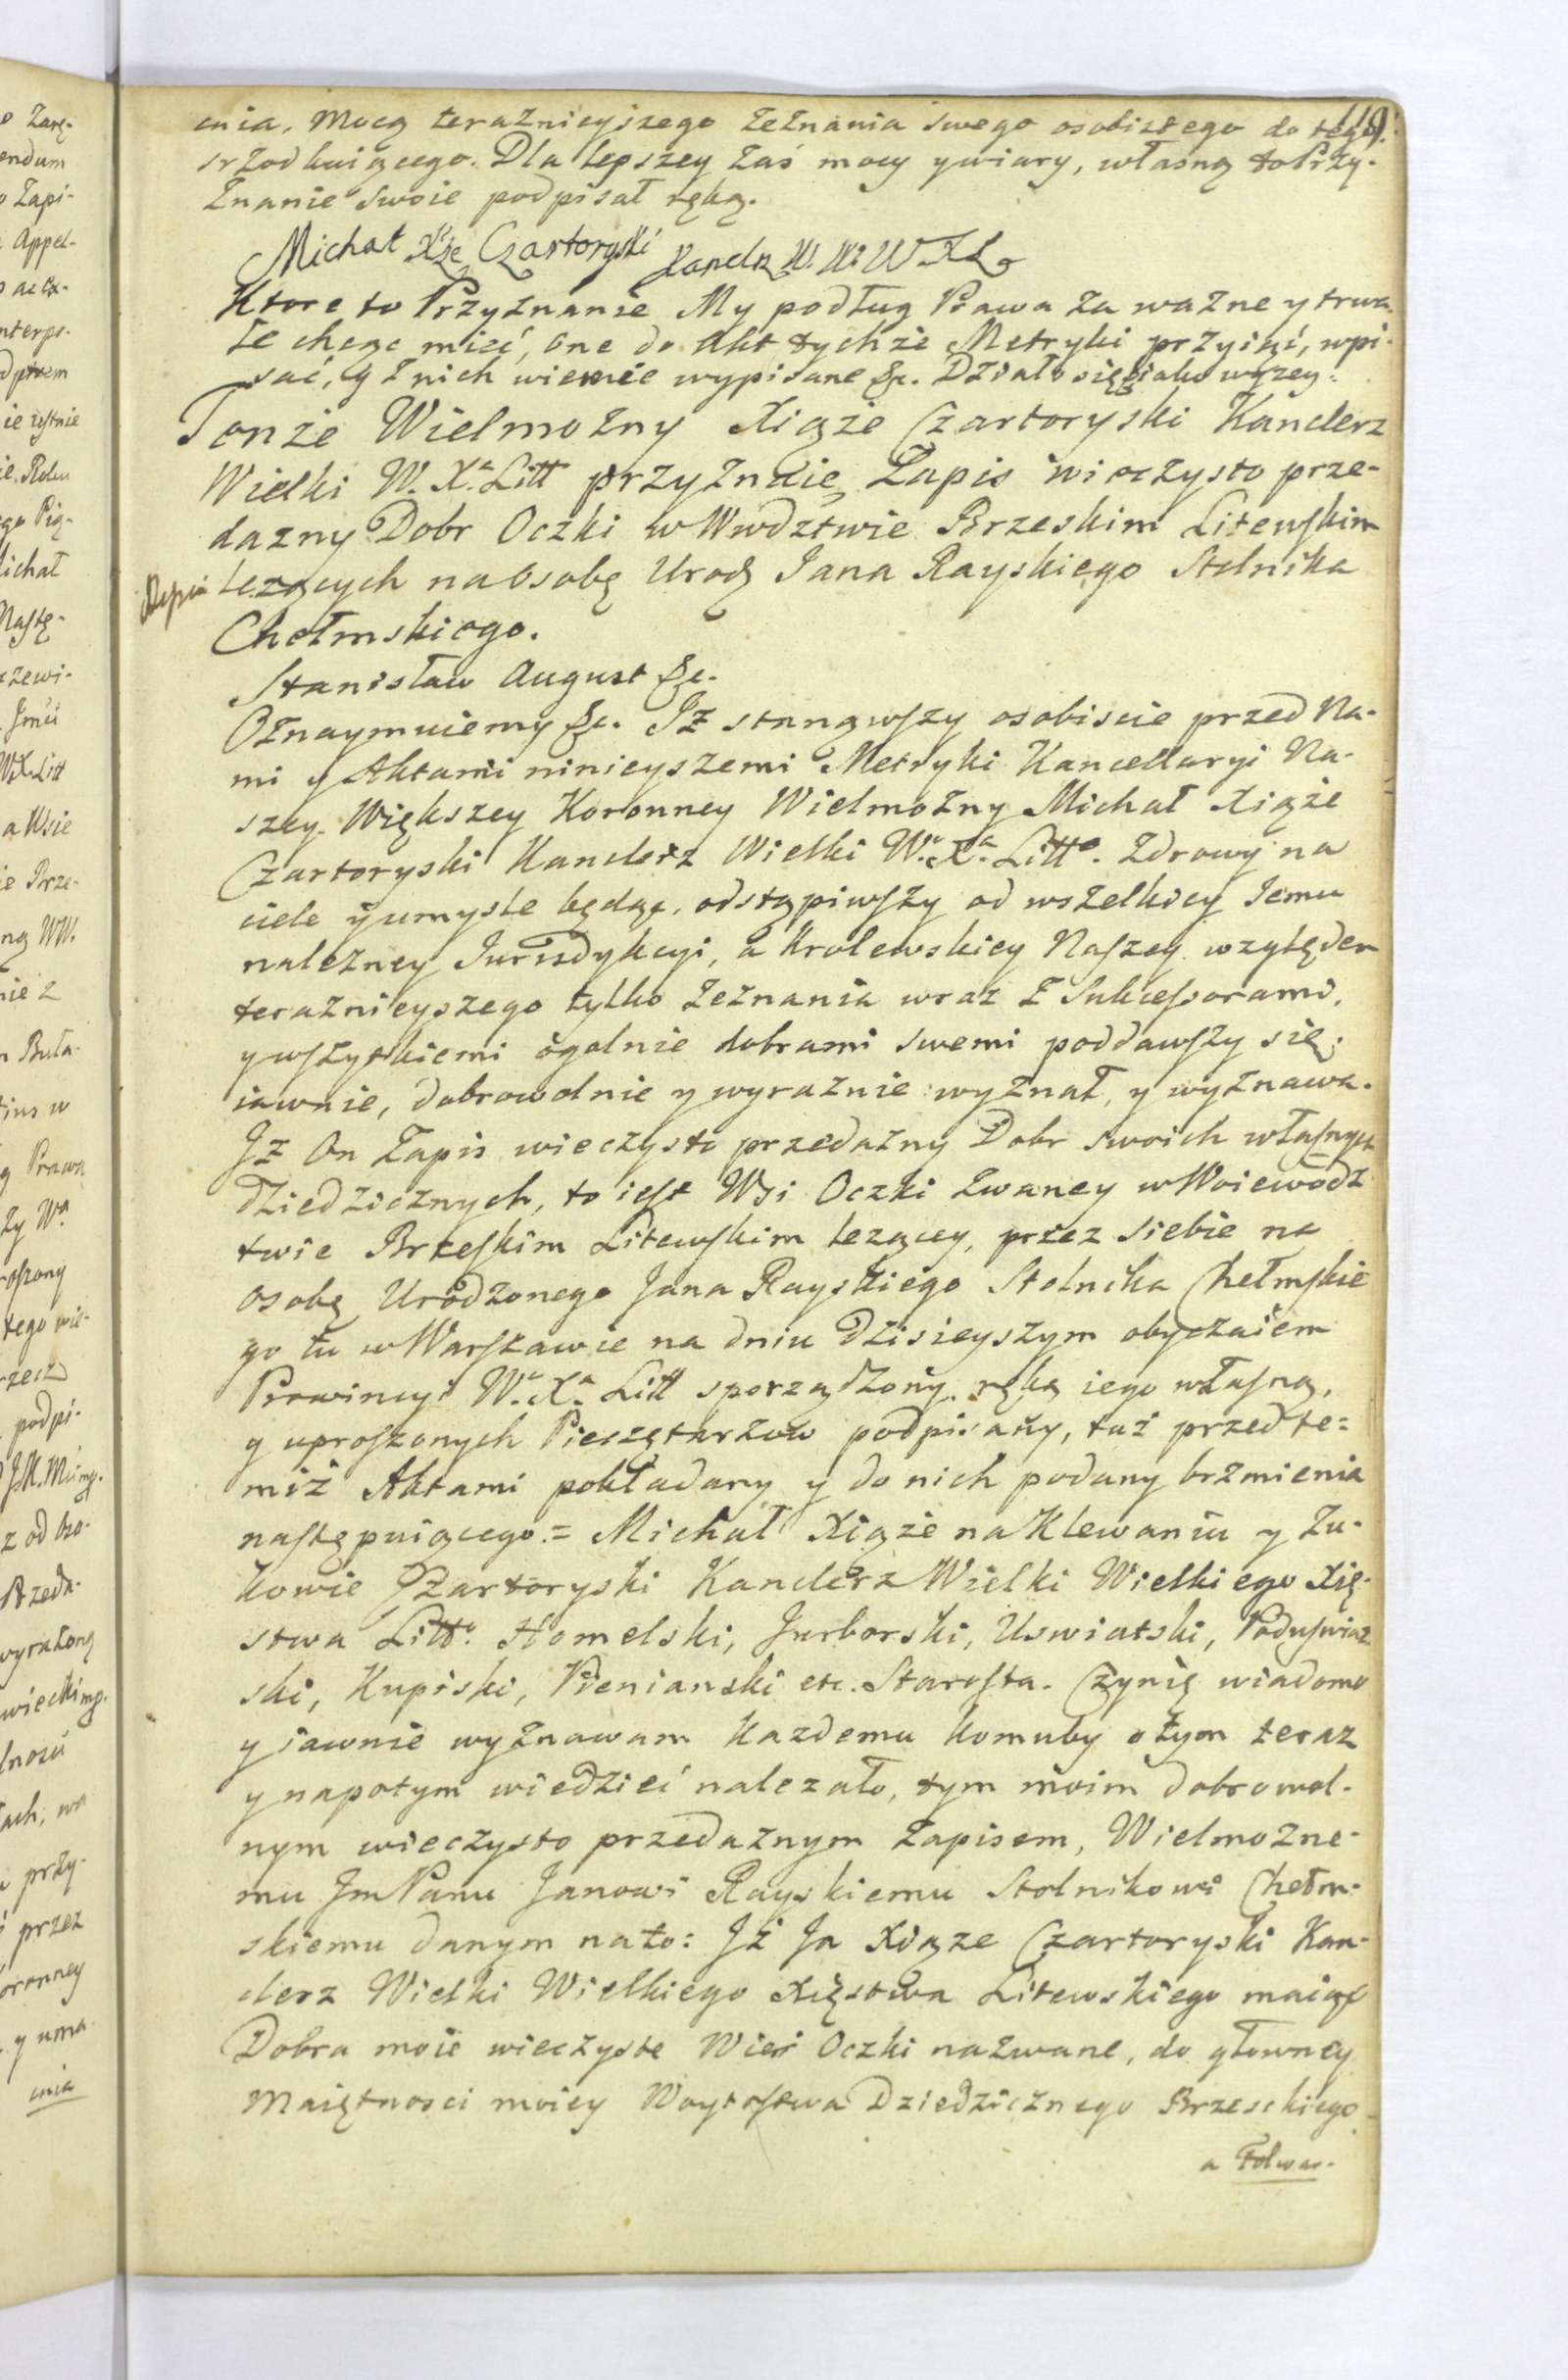 119.
enia, Mocą teraznieyszego Zeznania swego osobistego do tego
srzodkuiącego. Dla lepszey zaś mocy y wiary, własną to Przy-
znanie swoie podpisał ręką.
Michał Xże Czartoryski Kanclrz W. W. X L
Ktore to Przyznanie My podług Prawa za wazne y trwa-
łe chcąc mieć, one do Akt tychże Metryki przyiąć, wpi-
sać, y z nich wiernie wypisane &c. Działo się iako wyzey.
Tenże Wielmozny Xiąże Czartoryski Kanclerz
Wielki W. Xa. Litt przyznaie Zapis wieczysto prze-
dazny Dobr Oczki w Wwdztwie Brzeskim Litewskim
lezących na Osobę Urodz Jana Rayskiego Stolnika
Chełmskiego.
Stanisław August &c.
Oznaymuiemy &c. Iż stanąwszy osobiscie przed Na-
mi y Aktami ninieyszemi Metryki Kancellaryi Na-
szey Większey Koronney Wielmożny Michał Xiąże
Czartoryski Kanclerz Wielki Wo. Xa. Litto. Zdrowy na
ciele y umysle będąc, odstąpiwszy od wszelkiey Jemu
nalezney Jurisdykcyi, a Krolewskiey Naszey względem
teraznieyszego tylko Zeznania wraz z Sukcessorami,
y wszystkiemi ogolnie dobrami swemi poddawszy się;
iawnie, dobrowolnie y wyraznie wyznał, y wyznawa.
Iż On Zapis wieczysto przedazny Dobr swoich własnych
Dziedzicznych, to iest Wsi Oczki zwaney w Woiewodz
twie Brzeskim Litewskim lezącey, przez siebie na
osobę Urodzonego Jana Rayskiego Stolnika Chełmskie
go tu w Warszawie na dniu dzisieyszym obyczaiem
Prowincyi Wa. Xa. Litt sporządzony ręką iego własną,
y uproszonych Pieczętarzow podpisany, tuż przed te=
miż Aktami pokładany y do nich podany brzmienia
następuiącego = Michał Xiąże na Klewaniu y Zu-
kowie Czartoryski Kanclerz Wielki Wielkiego Xię-
stwa Litto. Homelski, Jurborski, Uswiatski, Poduswiat
ski, Kupiski, Pienianski etc. Starosta. Czynię wiadomo
y iawnie wyznawam Kazdemu komuby o tym teraz
y napotym wiedzieć nalezało, tym moim dobrowol-
nym wieczysto przedaznym Zapisem, Wielmozne-
mu Jm Panu Janowi Rayskiemu Stolnikowi Chełm-
skiemu danym na to: Iż Ja Xiąze Czartoryski Kan-
clerz Wielki Wielkiego Xięstwa Litewskiego maiąc
Dobra moie wieczyste Wieś Oczki nazwane, do głowney
Maiętnosci moiey Woytostwa Dziedzicznego Brzeskiego
a Folwar-